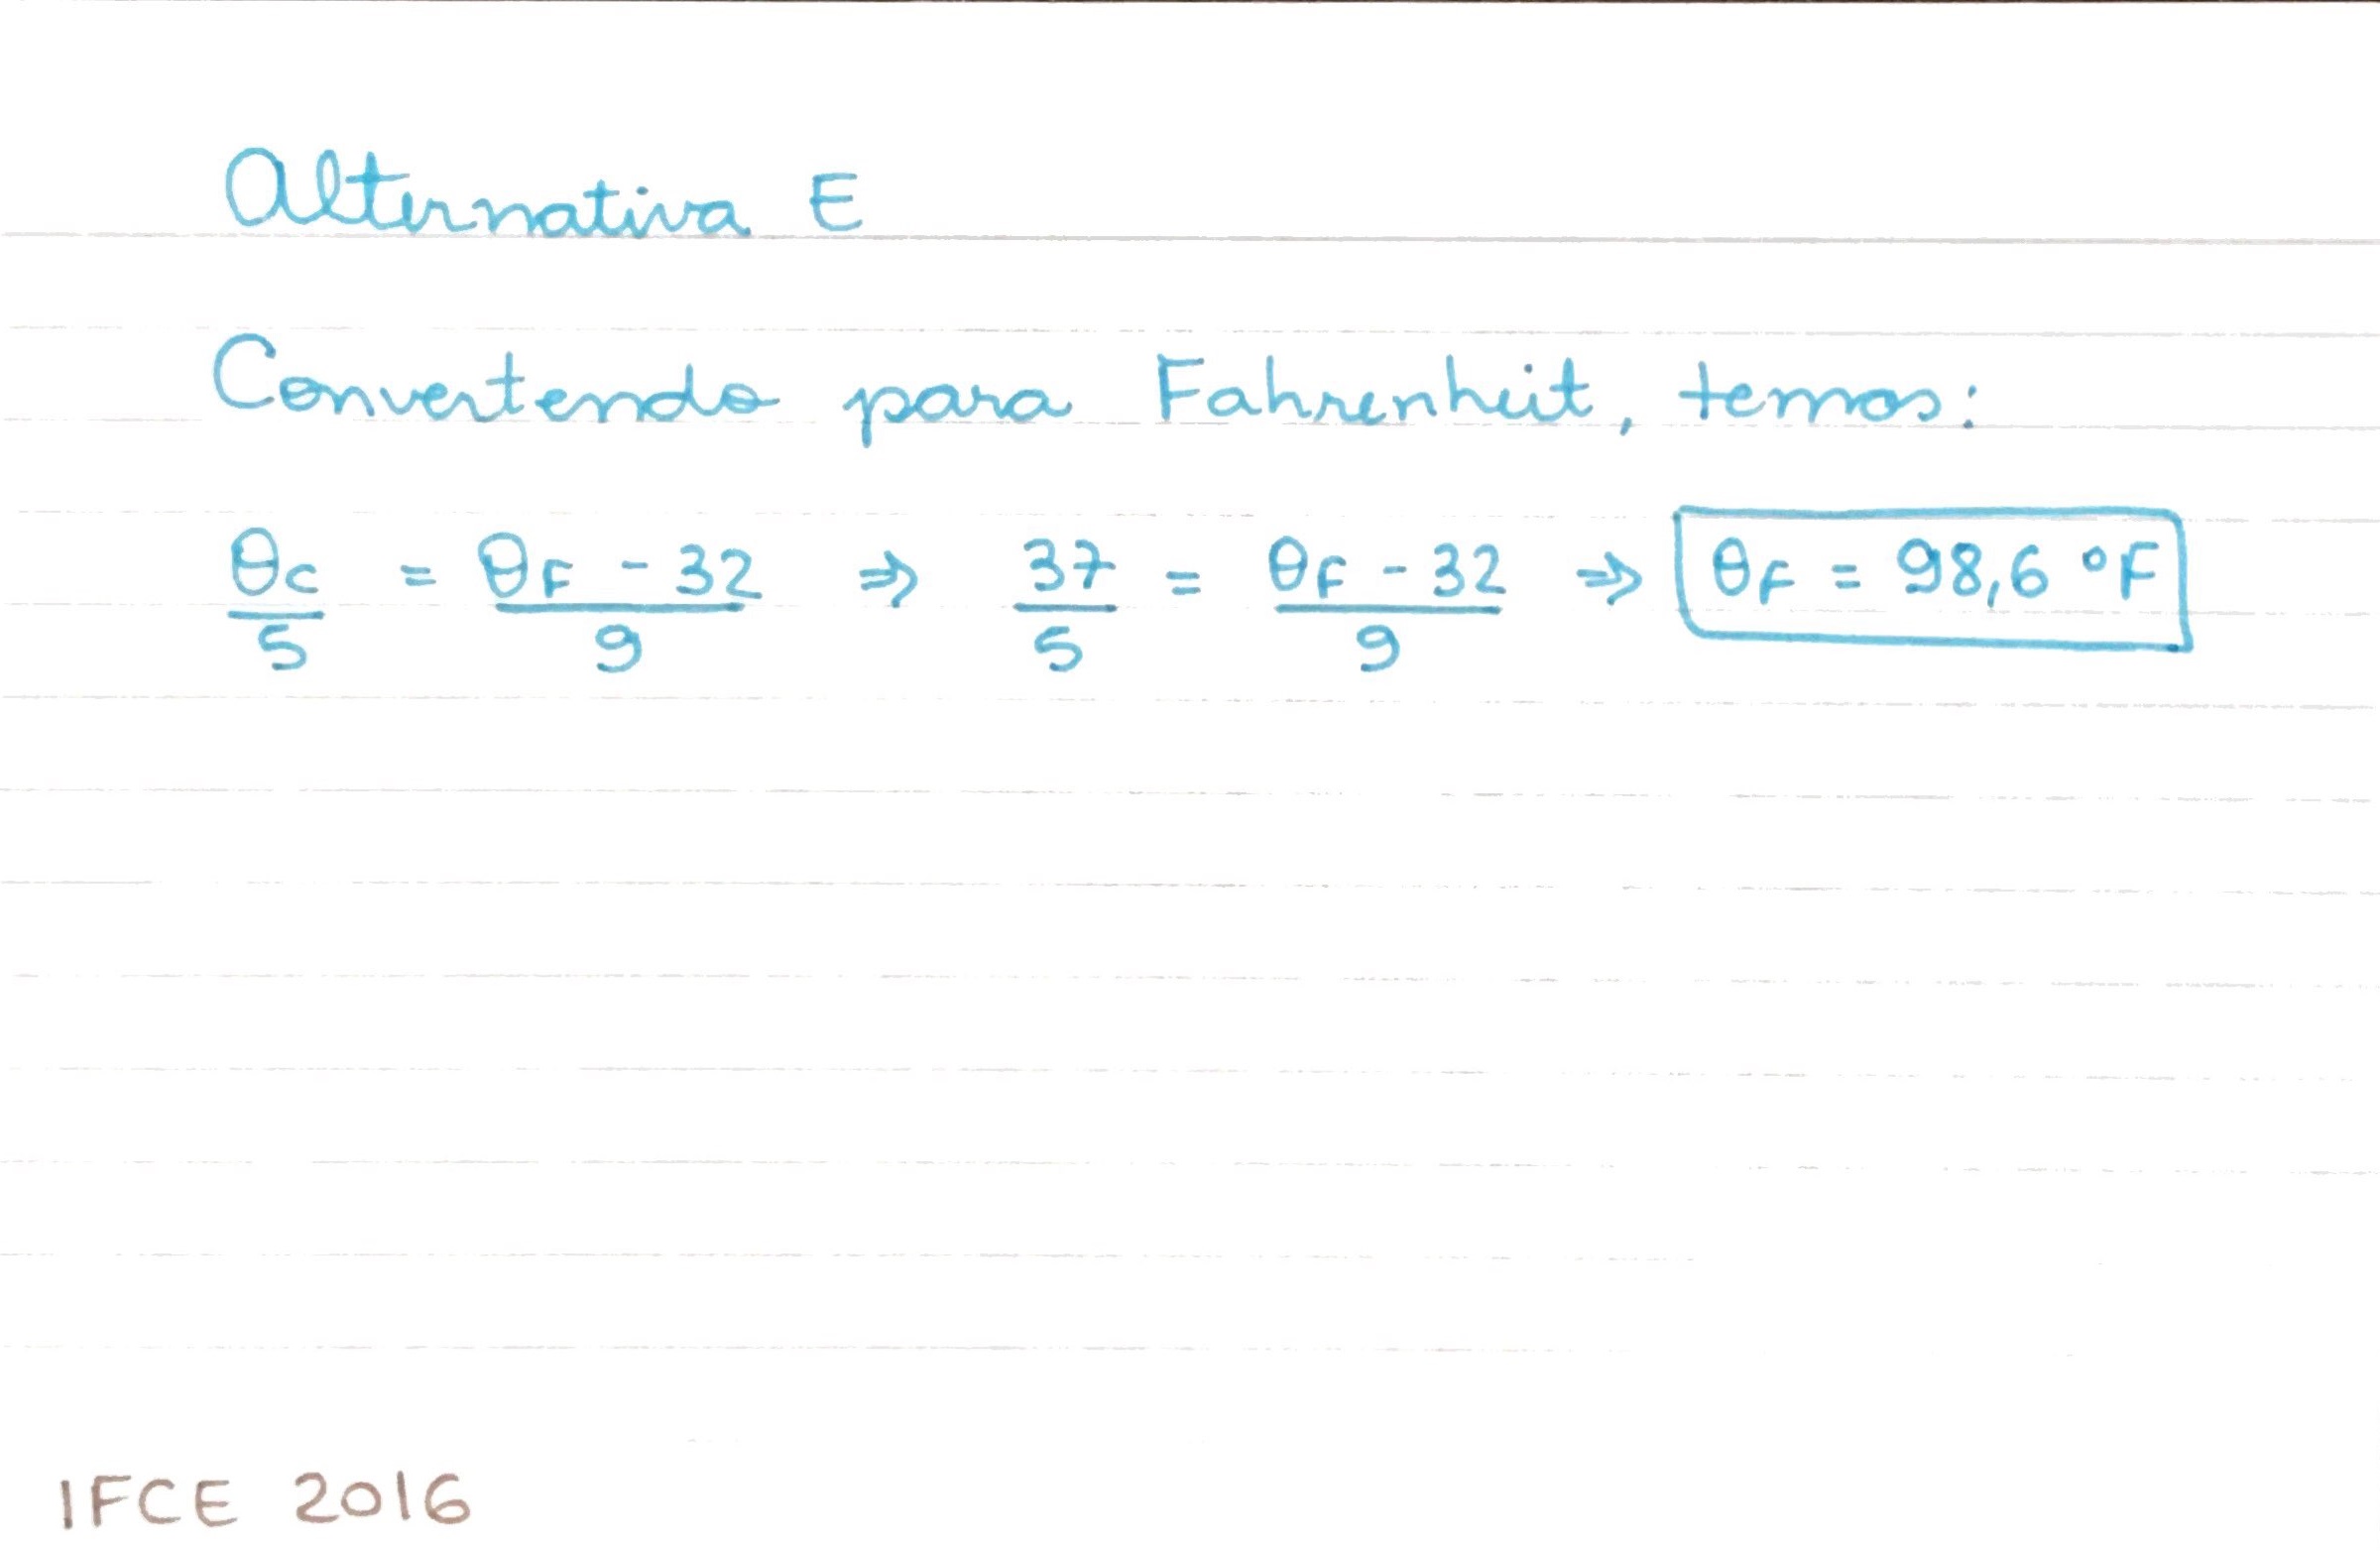 Alternativa E
Convertendo para Fahrenheit, temos:
θc/5 = θF - 32/9 ⇒ 37/5 = θF - 32/9 ⇒ θF = 98,6 °F
IFCE 2016